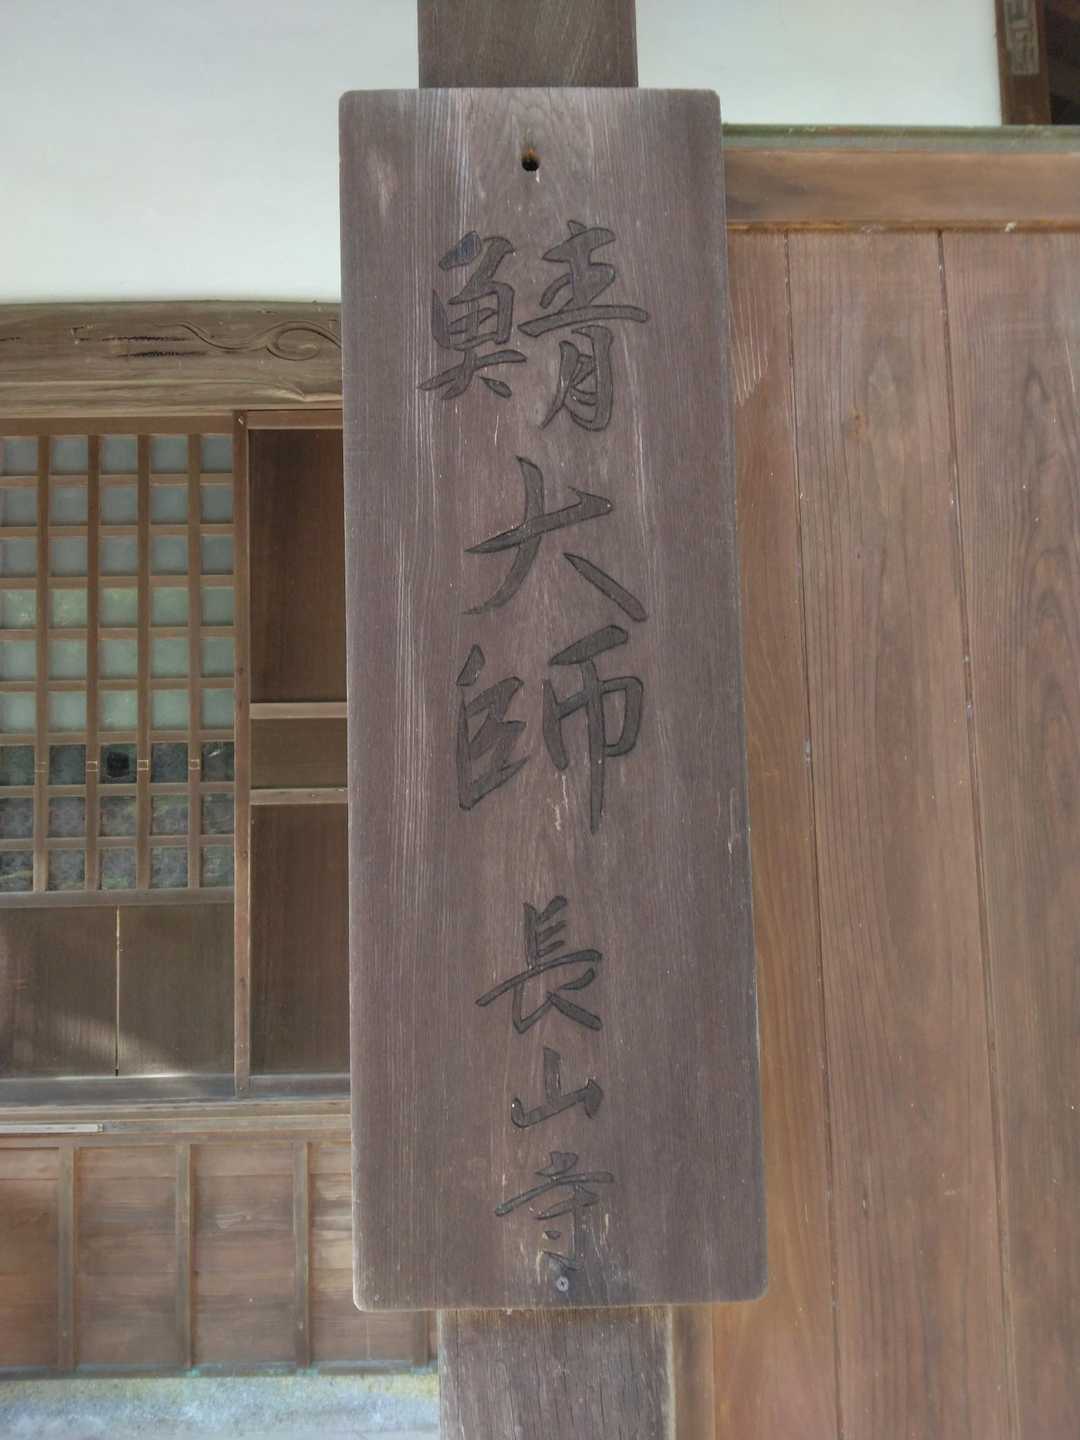 鯖大師 長山寺